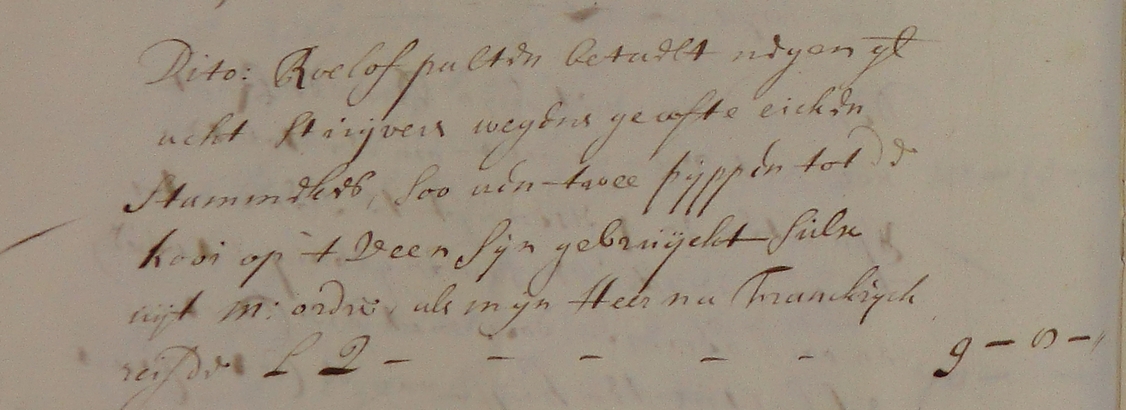 Dito: Roelof pulten betaelt negen gl
acht stuijvers wegens gecofte eicken
stammekes, soo aen twee pijppen tot de
kooi op t Veen sijn gebruijckt sulx
uijt m: ordre, als mijn Heer na Franckrijck
reijsde L 2 - - - - - 9 - 8 - "